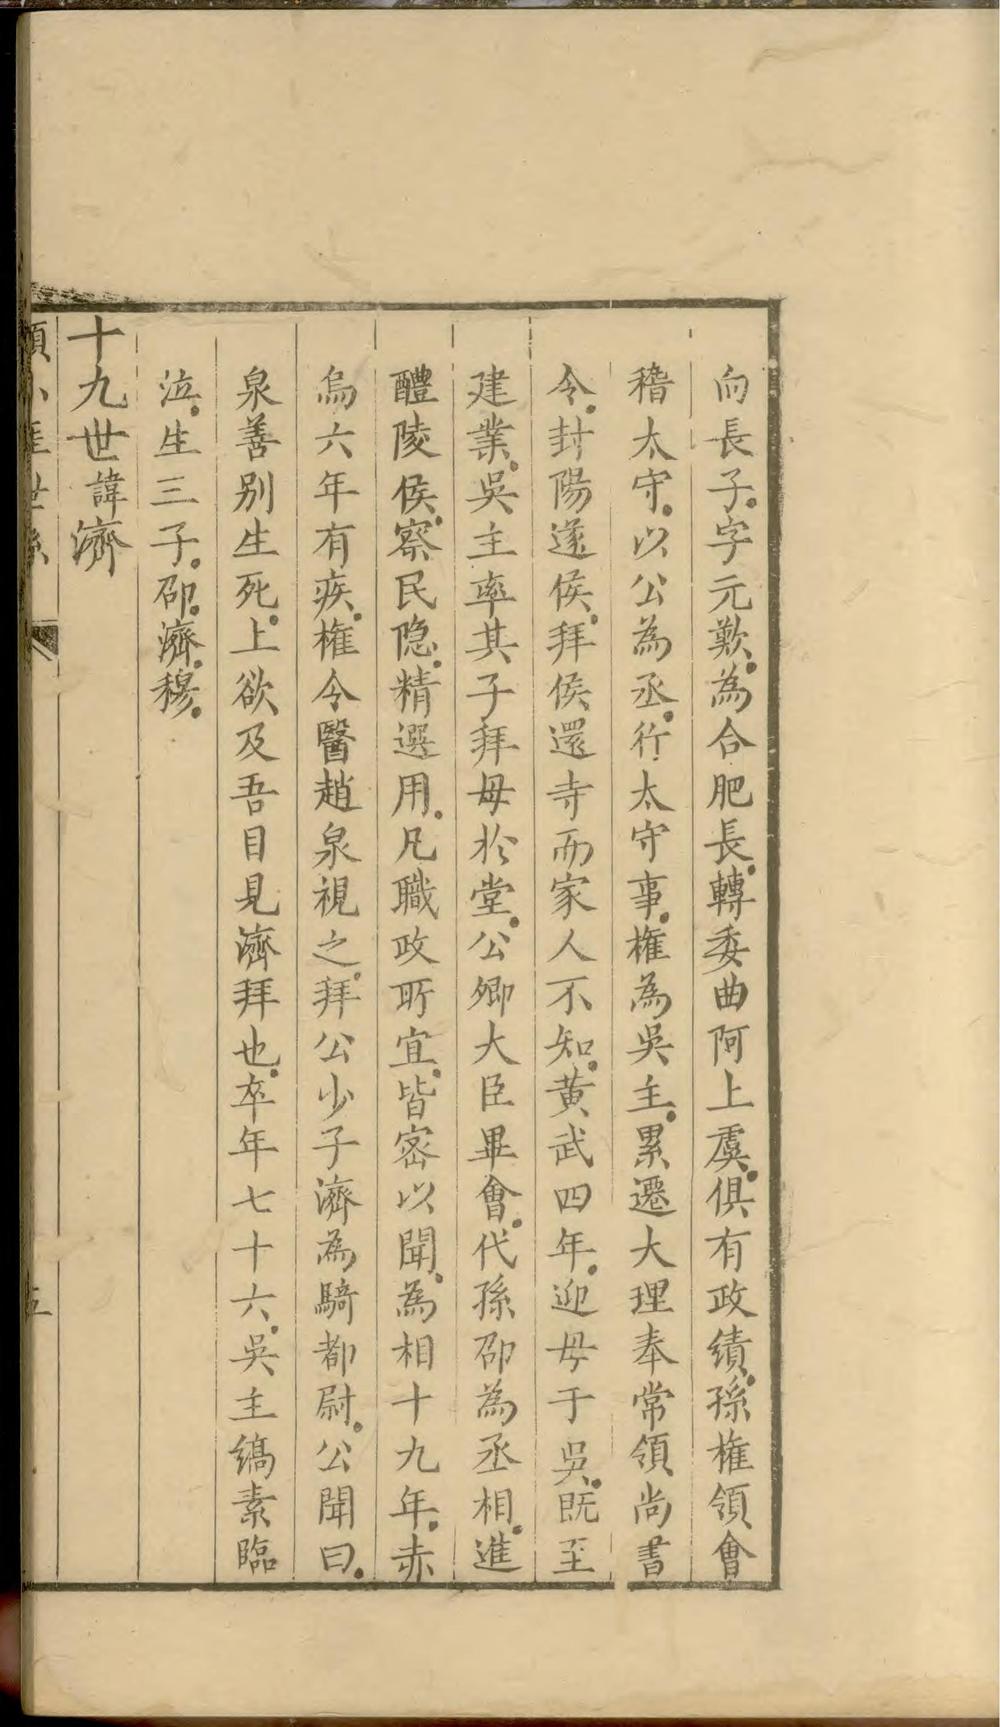 向長子字元歎為合肥長轉委曲阿上虞俱有政績孫權領會
稽太守以公為丞行太守事權為吳主累遷大理奉常領尚書
令封陽遂侯拜侯還寺而家人不知黃武四年迎母于吳既至
建業吳主率其子拜母於堂公卿大臣畢會代孫邵為丞相進
醴陵侯察民隐精選用凡職政所宜皆密以聞為相十九年赤
烏六年有疾權令醫趙泉視之拜公少子濟為騎都尉公聞曰
泉善別生死上欲及吾目見濟拜也卒年七十六吳主縞素臨
泣生三子邵濟穆
十九世諱濟
五